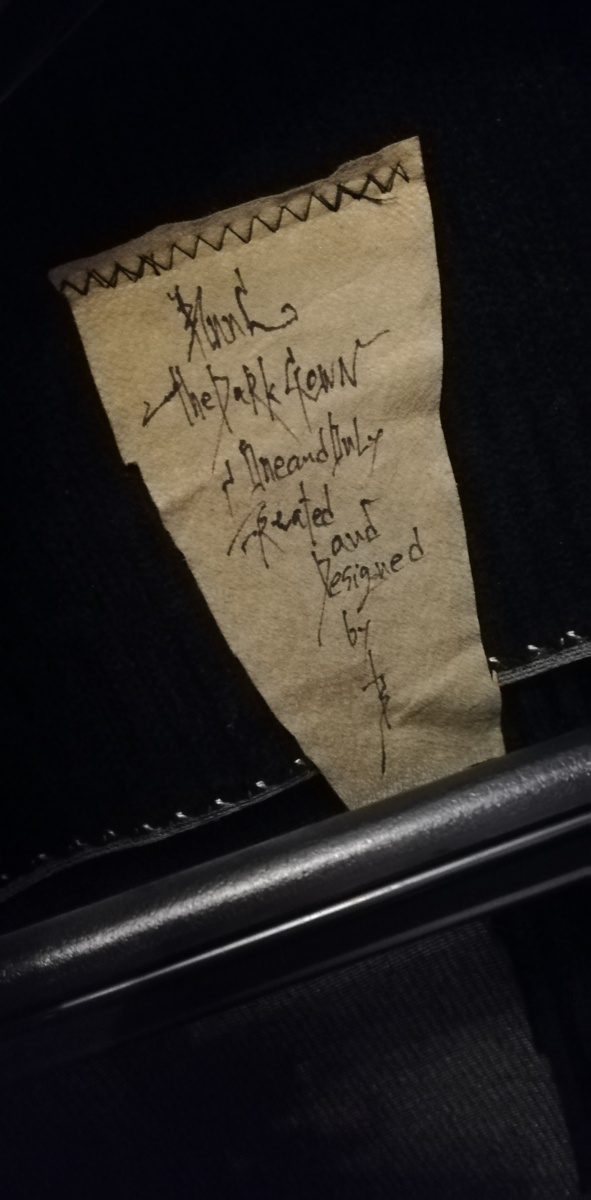 the Dark Gown
One and Only
Created
and
Designed
by